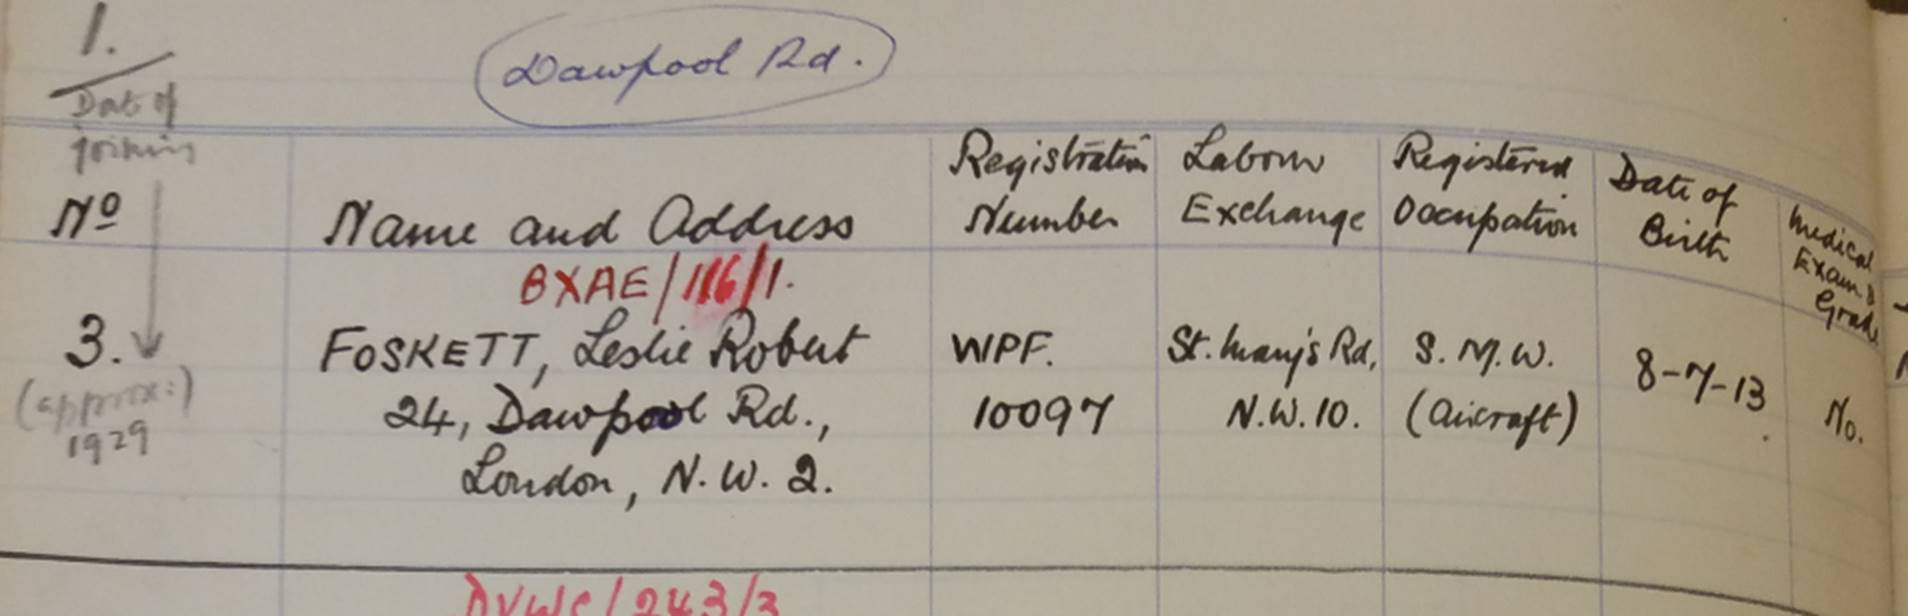 1.
Dawpool Rd.
Date of
joining
No
Name and Address
Registration
Number
Labour
Exchange
Registered
Occupation
Date of
Birth
Medical
Exam &
Grade
BXAE/116/1.
3.
(approx:)
1929
FOSKETT, Leslie Robert
24, Dawpool Rd.,
London, N.W. 2.
WPF.
10097
St. Mary's Rd,
N.W. 10.
S. M. W.
(Aircraft)
8-7-13
No.